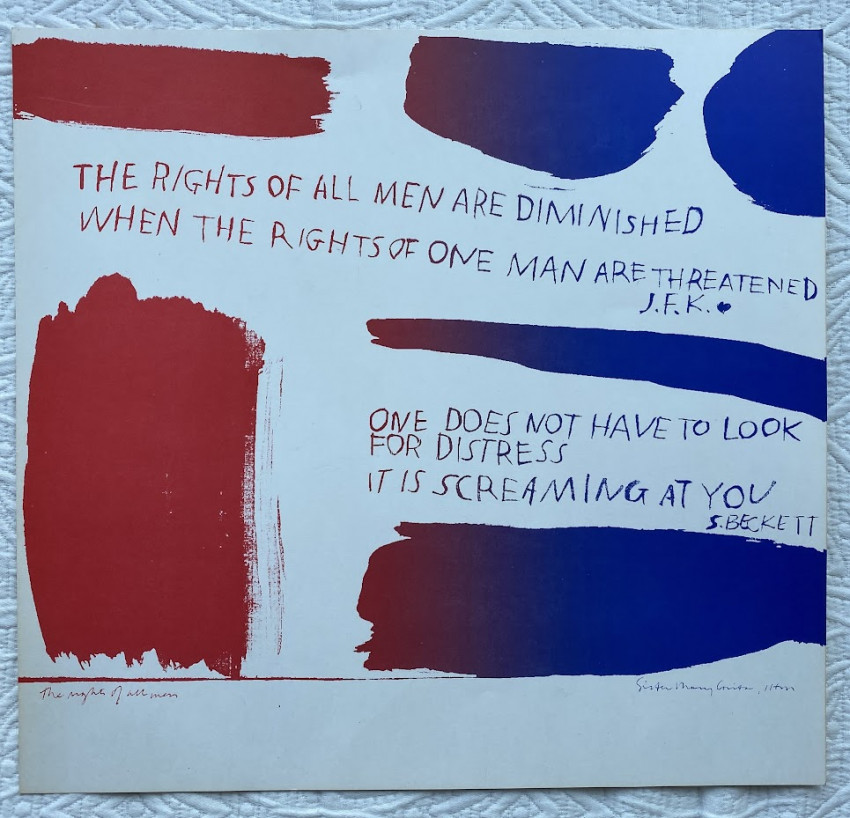 THE RIGHTS OF ALL MEN ARE DIMINISHED
WHEN THE RIGHTS OF ONE MAN ARE THREATENED
J.F.K.
ONE DOES NOT HAVE TO LOOK
FOR DISTRESS
IT IS SCREAMING AT YOU
S. BECKETT
The rights of all men
Sister Mary Corita, IHM